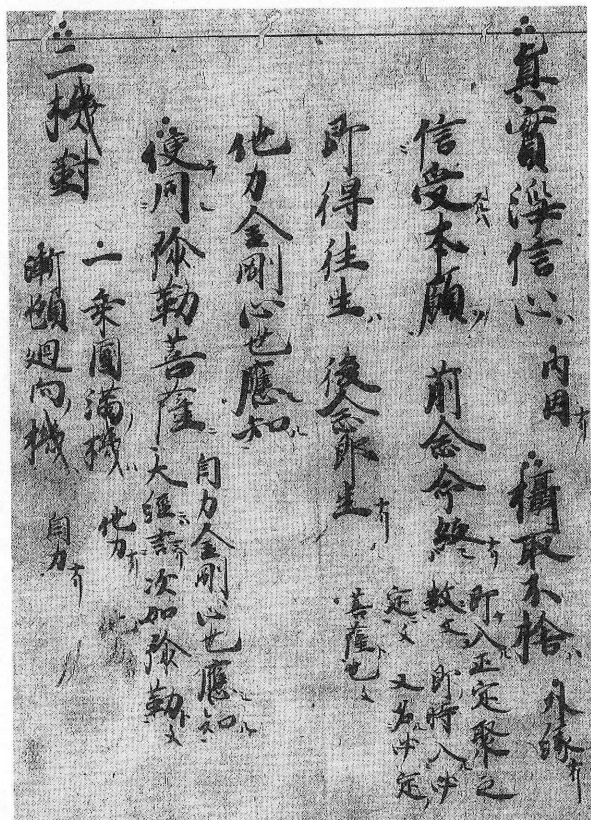 真實淨信心ハ 内因ナリ 攝取不捨ハ 外縁ナリ
信受本願 前念命終ナリ
即入正定聚之
數文 即時入必
定文 又名必定
菩薩也文
即得往生ハ 後念即生ナリ
他力金剛心也應知
便同弥勒菩薩
自力金剛心也應知
大經言次如弥勒文
二機對
一乘圓滿機ハ 他力ナリ
漸頓廻向機ハ 自力ナリ